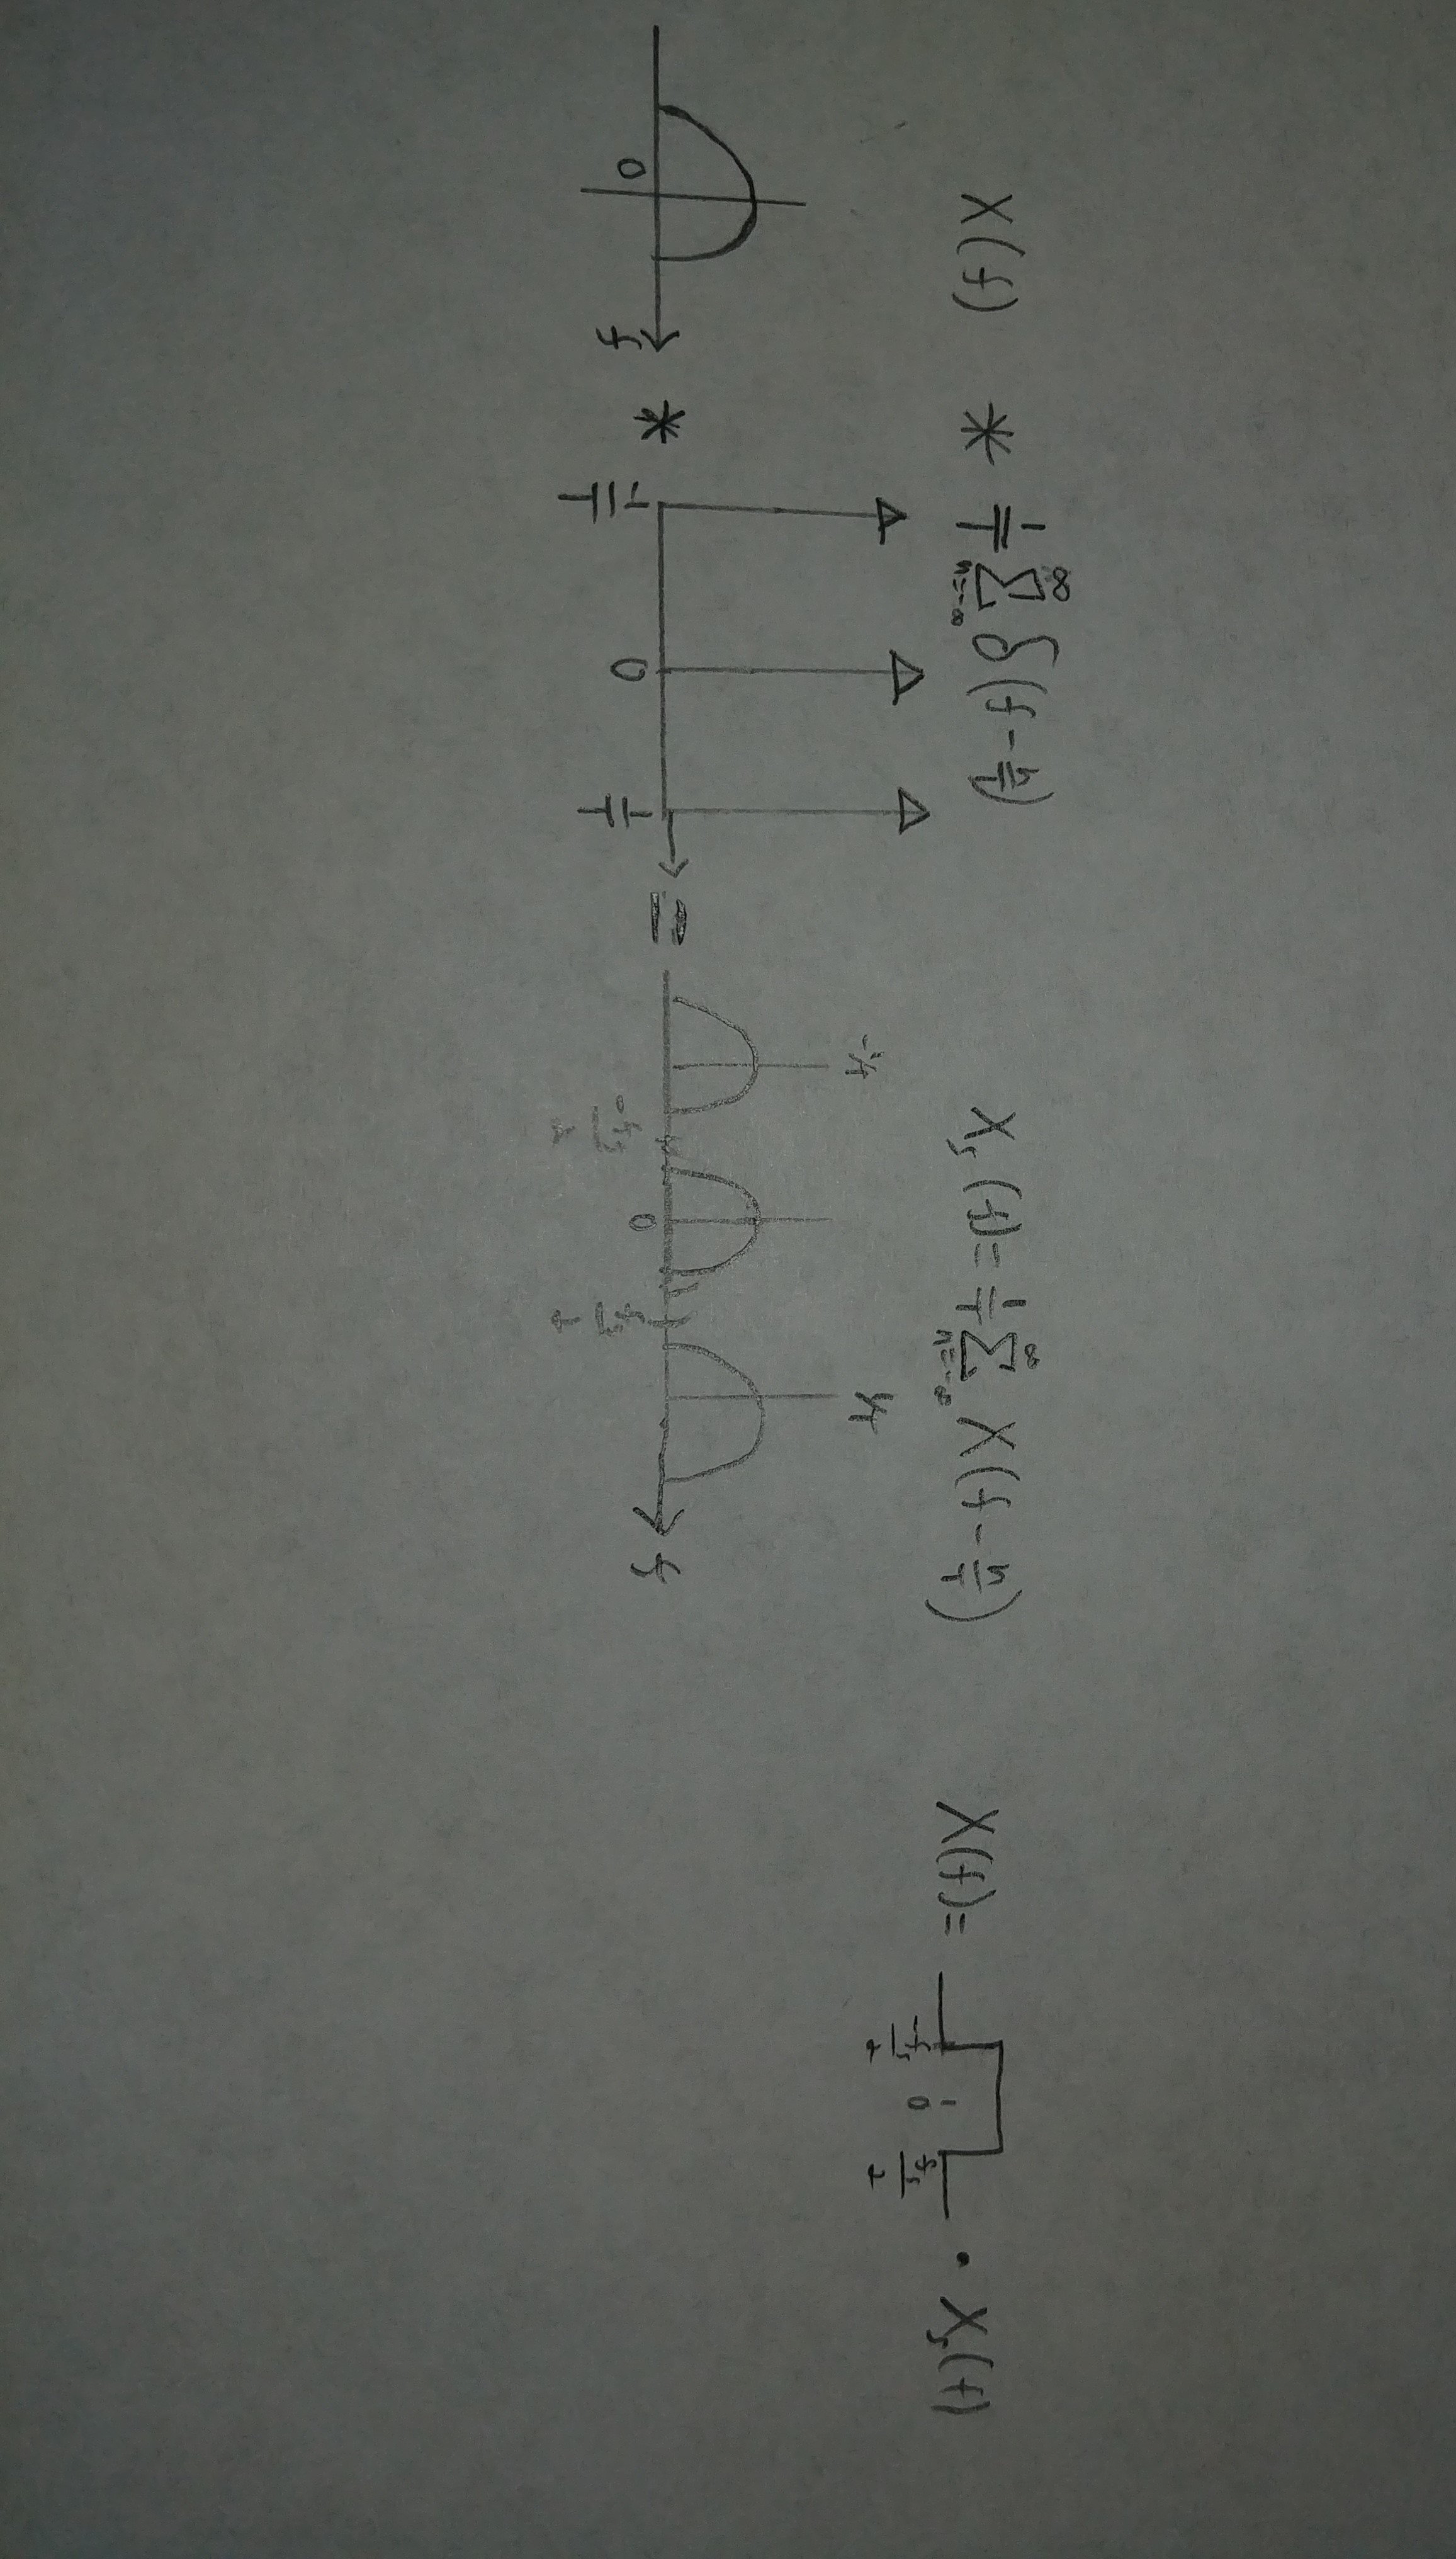 X(f) * 1/T ∑_{n=-∞}^{∞} δ(f - n/T)
X_s(f) = 1/T ∑_{n=-∞}^{∞} X(f - n/T)
X(f) = · X_s(f)
-f_s/2 0 f_s/2
0 f
*
-1/T 0 1/T
=
-1/T 1/T
-f_s/2 0 f_s/2 f